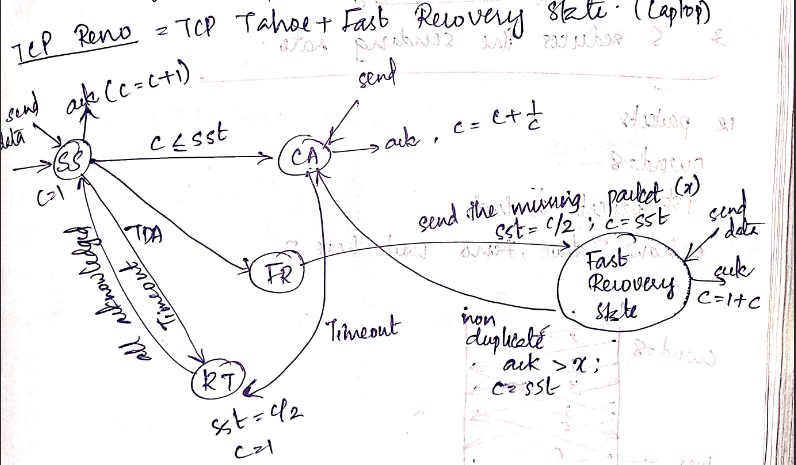 TCP Reno = TCP Tahoe + Fast Recovery State. (Laptop)
send data
ack (c=c+1)
send
SS
c=1
c ≤ sst
CA
ack, c = c + 1/c
TDA
Timeout
all acknowledged
FR
send the missing packet (x)
sst = c/2 ; c = sst
send data
Fast
Recovery
state
ack
c=1+c
Timeout
non
duplicate
ack > x ;
c = sst
RT
sst = c/2
c=1